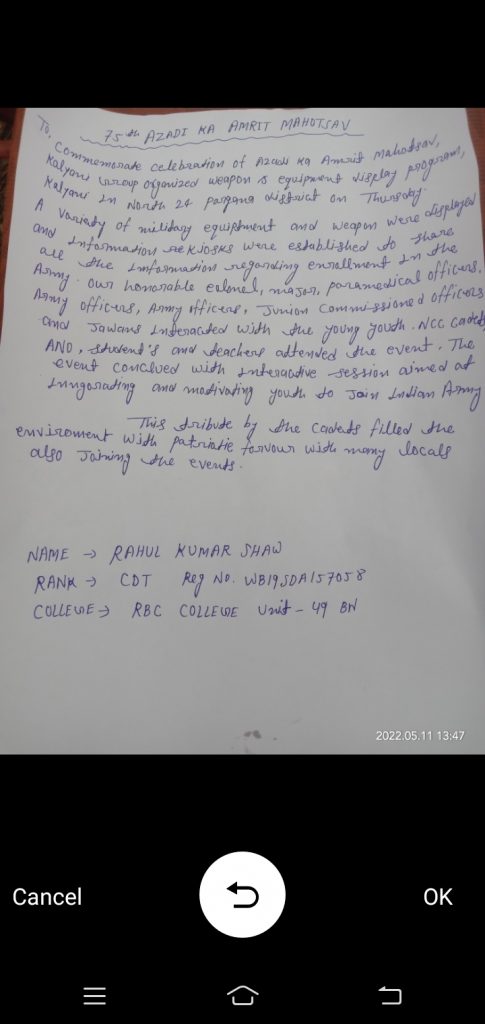 75th AZADI KA AMRIT MAHOTSAV
To,
Commemorate celebration of Azadi ka Amrit Mahotsav,
Kalyani Group organized weapon & equipment display program,
Kalyani in North 24 pargana district on Thursday.
A variaty of military equiptment and weapon were displayed
and information kiosks were established to share
all the information regarding enrollment in the
Army. our honorable colonel, major, paramedical officers,
Army officers, Army officers, Junion Commissioned officers
and Jawans interacted with the young youth. NCC Cadets,
ANO, student's and teachers attended the event. The
event conclued with interactive session aimed at
invgorating and motivating youth to Join Indian Army
This tribute by the Cadets filled the
enviroment with patriatic farvour with many locals
also Joining the events.
NAME → RAHUL KUMAR SHAW
RANK → CDT Reg No. WB19SDA157058
COLLEGE → RBC COLLEGE Unit - 49 BN
2022.05.11 13:47
Cancel
OK